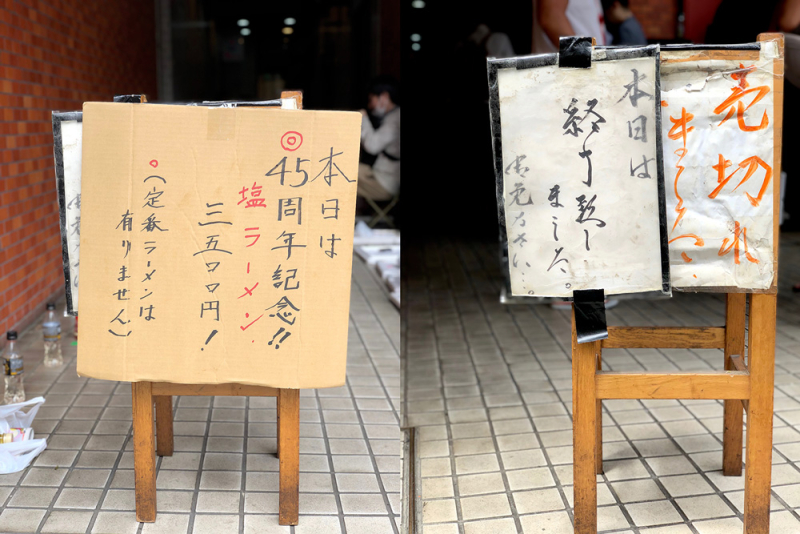 本日は
◎45周年記念!!
塩ラーメン
三五〇〇円!
○(定番ラーメンは
有りません)
売切れ
ました
本日は
終了致し
ました。
御免なさい。